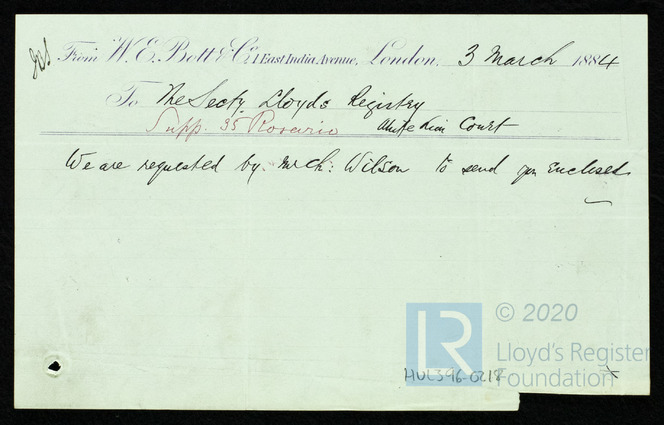 From W. E. Bott & Co. 1 East India Avenue, London, 3 March 1884
To The Secty Lloyds Registry
Supp. 35 Rosario White Lion Court
We are requested by Mr Ch: Wilson to send you enclosed
LR
© 2020
Lloyd's Register
Foundation
HUL396-0218